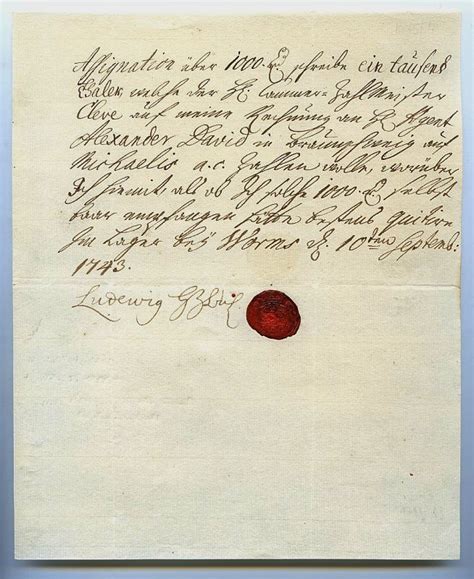 Assignation über 1000 rt schreibe ein tausend
Taler, welche der H: Cammer-Zahlmeister
Cleve auf meine Rechnung an H: Agent
Alexander David in Braunschweig auf
Michaelis a.c. zahlen wolle, worüber
Ich hiemit als ob Ich solche 1000 rt selbst
baar empfangen hätte bestens quitire
Im Lager bey Worms d. 10ten Septemb:
1743.
Ludewig